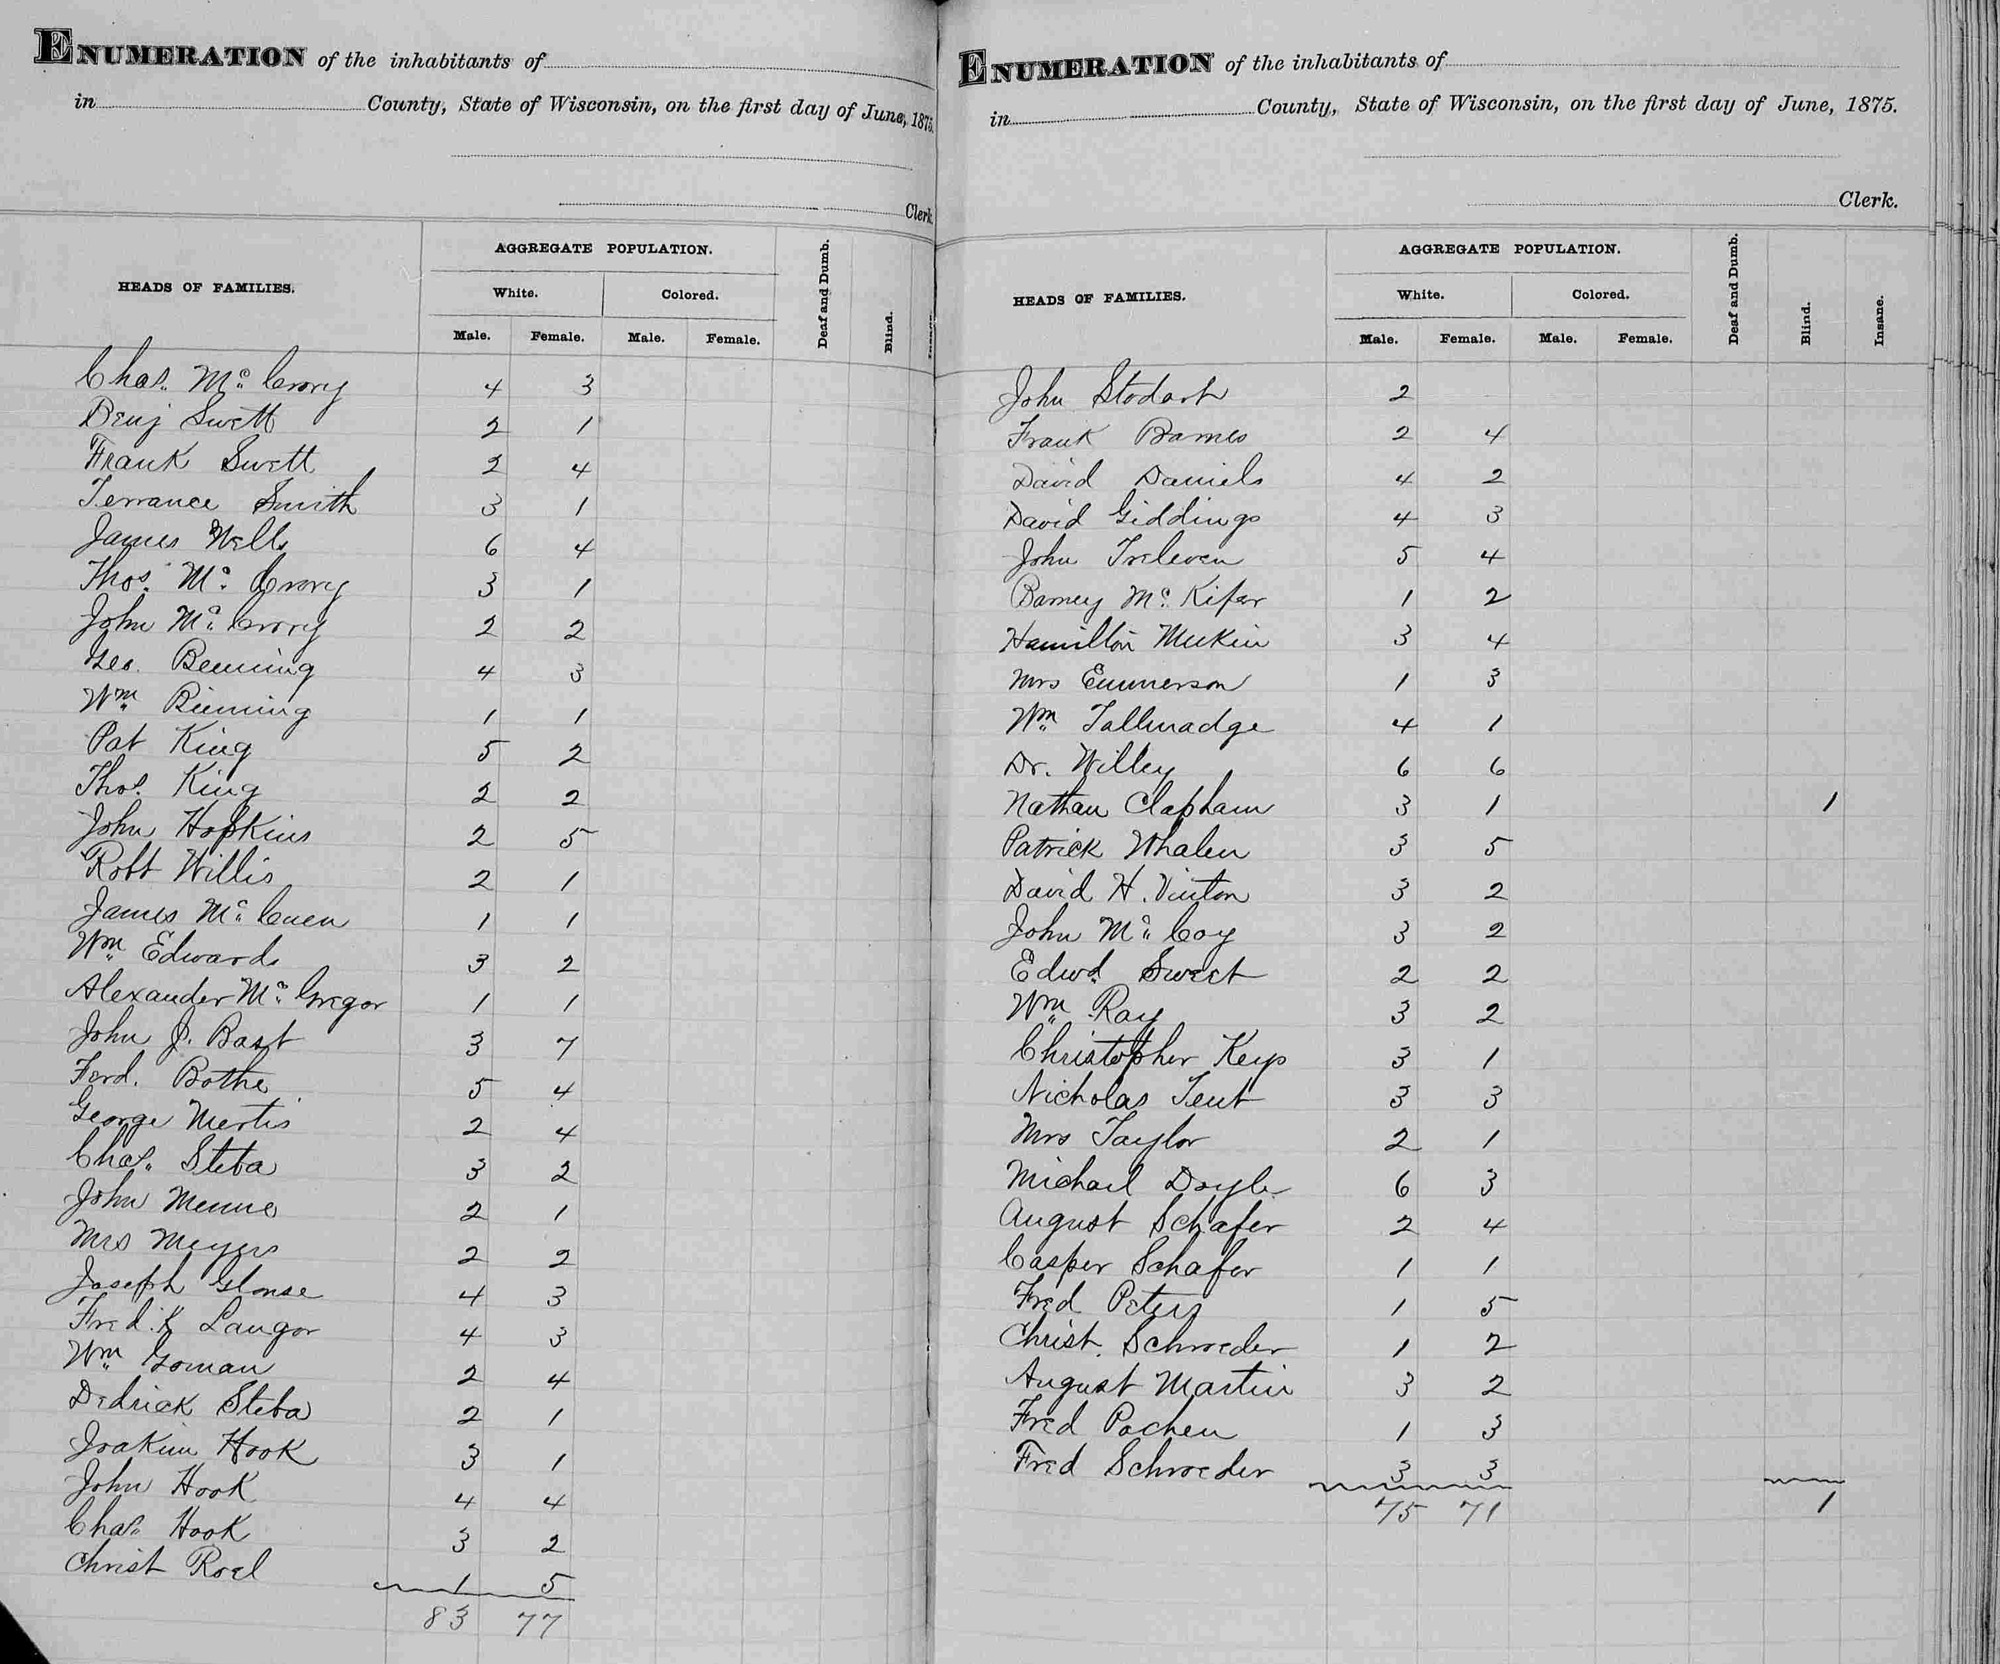 ENUMERATION of the inhabitants of
in County, State of Wisconsin, on the first day of June, 1875.
Clerk.
HEADS OF FAMILIES. AGGREGATE POPULATION. Deaf and Dumb. Blind.
White. Colored.
Male. Female. Male. Female.
Chas. Mc. Crory 4 3
Benj Swett 2 1
Frank Swett 2 4
Terrance Smith 3 1
James Wells 6 4
Thos. Mc. Crory 3 1
John Mc. Crory 2 2
Geo. Benning 4 3
Wm. Binning 1 1
Pat King 5 2
Thos. King 2 2
John Hopkins 2 5
Robt Willis 2 1
James Mc. Cuen 1 1
Wm. Edwards 3 2
Alexander Mc. Gregor 1 1
John J. Bast 3 7
Ferd. Bothe 5 4
George Mertis 2 4
Chas. Steba 3 2
John Menne 2 1
Mrs Meyers 2 2
Joseph Glonse 4 3
Fred.k Langor 4 3
Wm. Goman 2 4
Dedrick Steba 2 1
Joakim Hook 3 1
John Hook 4 4
Chas. Hook 3 2
Christ Roel 1 5
83 77
ENUMERATION of the inhabitants of
in County, State of Wisconsin, on the first day of June, 1875.
Clerk.
HEADS OF FAMILIES. AGGREGATE POPULATION. Deaf and Dumb. Blind. Insane.
White. Colored.
Male. Female. Male. Female.
John Stodart 2
Frank Barnes 2 4
David Daniels 4 2
David Giddings 4 3
John Treleven 5 4
Barney Mc. Kifer 1 2
Hamilton Meekin 3 4
Mrs Emmerson 1 3
Wm. Tallmadge 4 1
Dr. Willey 6 6
Nathan Clapham 3 1 1
Patrick Whalen 3 5
David H. Vinton 3 2
John Mc. Coy 3 2
Edwd. Sweet 2 2
Wm. Ray 3 2
Christopher Keys 3 1
Nicholas Tent 3 3
Mrs Taylor 2 1
Michael Doyle 6 3
August Schafer 2 4
Casper Schafer 1 1
Fred Peters 1 5
Christ. Schroeder 1 2
August Martin 3 2
Fred Pochen 1 3
Fred Schroeder 3 3
75 71 1